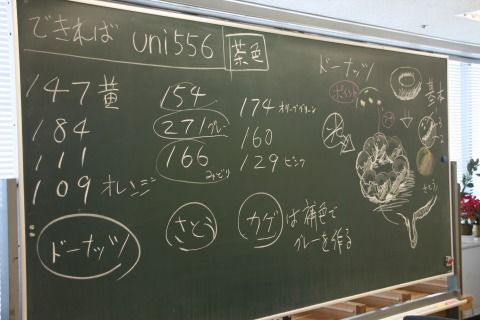 できれば uni556 茶色
147 黄
184
111
109 オレンジ
154
271 グレー
166 みどり
174 オリーブグリーン
160
129 ピンク
ドーナッツ
さとう
カゲ は補色で
グレーを作る
ドーナッツ
ポイント
基本
さとう